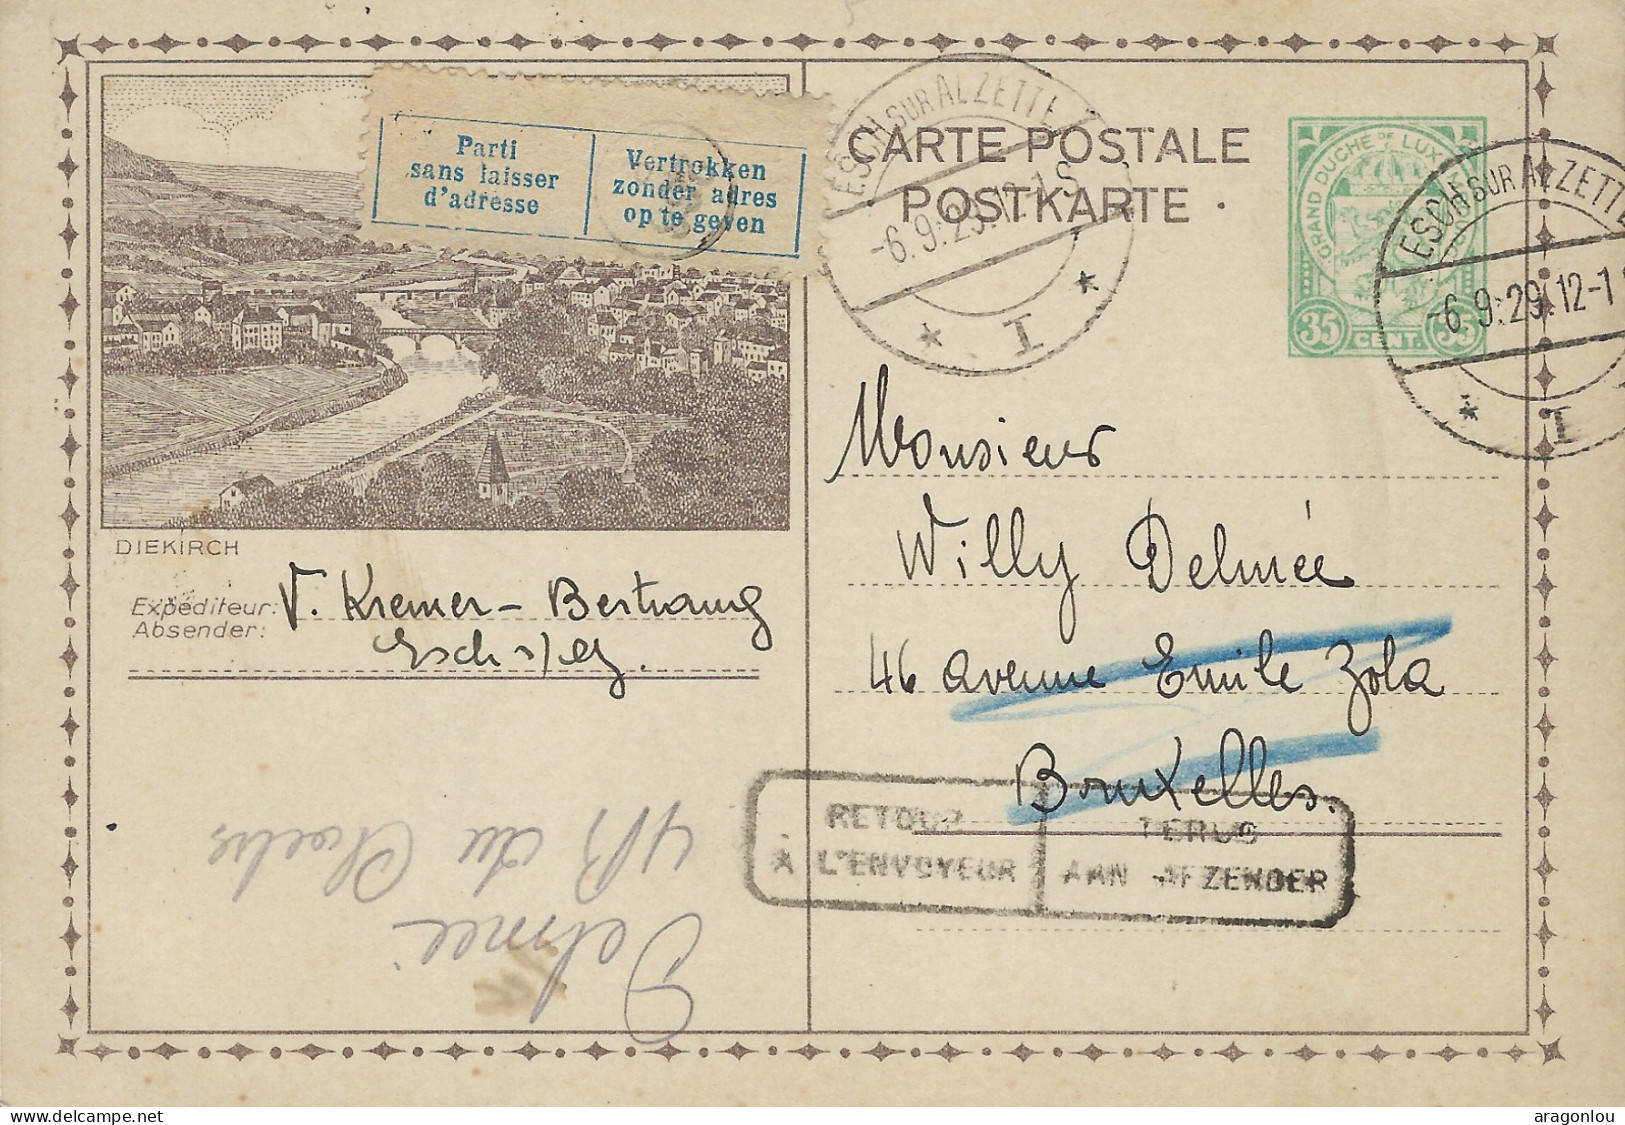 CARTE POSTALE
POSTKARTE
Parti
sans laisser
d'adresse
Vertrokken
zonder adres
op te geven
ESCH SUR ALZETTE
-6.9.29.12-1 S
I
GRAND DUCHÉ DE LUX
35 CENT. 35
ESCH SUR ALZETTE
-6.9.29.12-1
I
DIEKIRCH
Expéditeur:
Absender:
V. Kremer-Bertrang
Esch s/Alz.
Monsieur
Willy Delmée
46 avenue Emile Zola
Bruxelles.
RETOUR
À L'ENVOYEUR
TERUG
AAN AFZENDER
Delmée
aragonlou